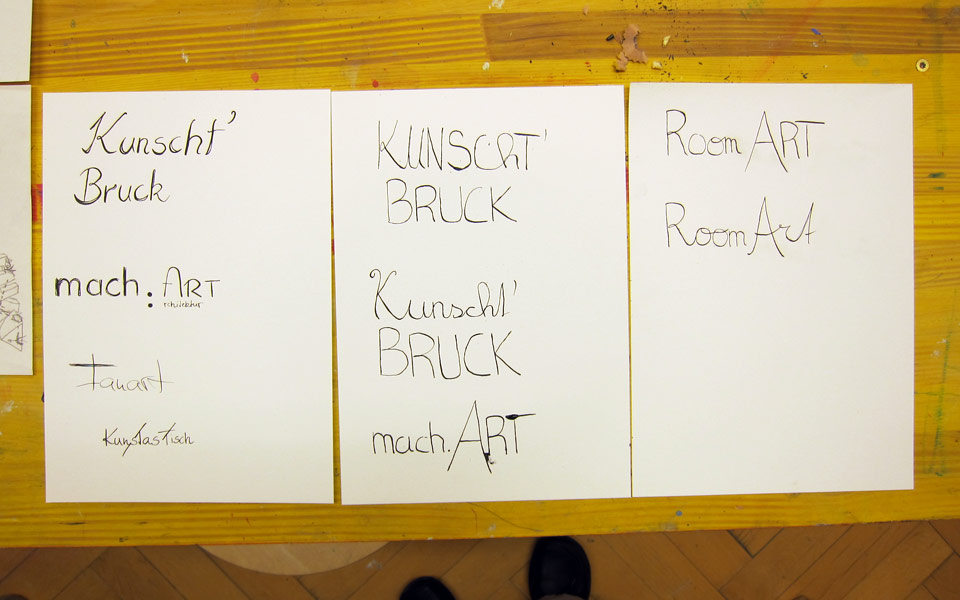 Kunscht'
Bruck
mach: ART
Kunstastisch
KUNSchT'
BRUCK
Kunscht'
BRUCK
mach.ART
Room ART
Room Art